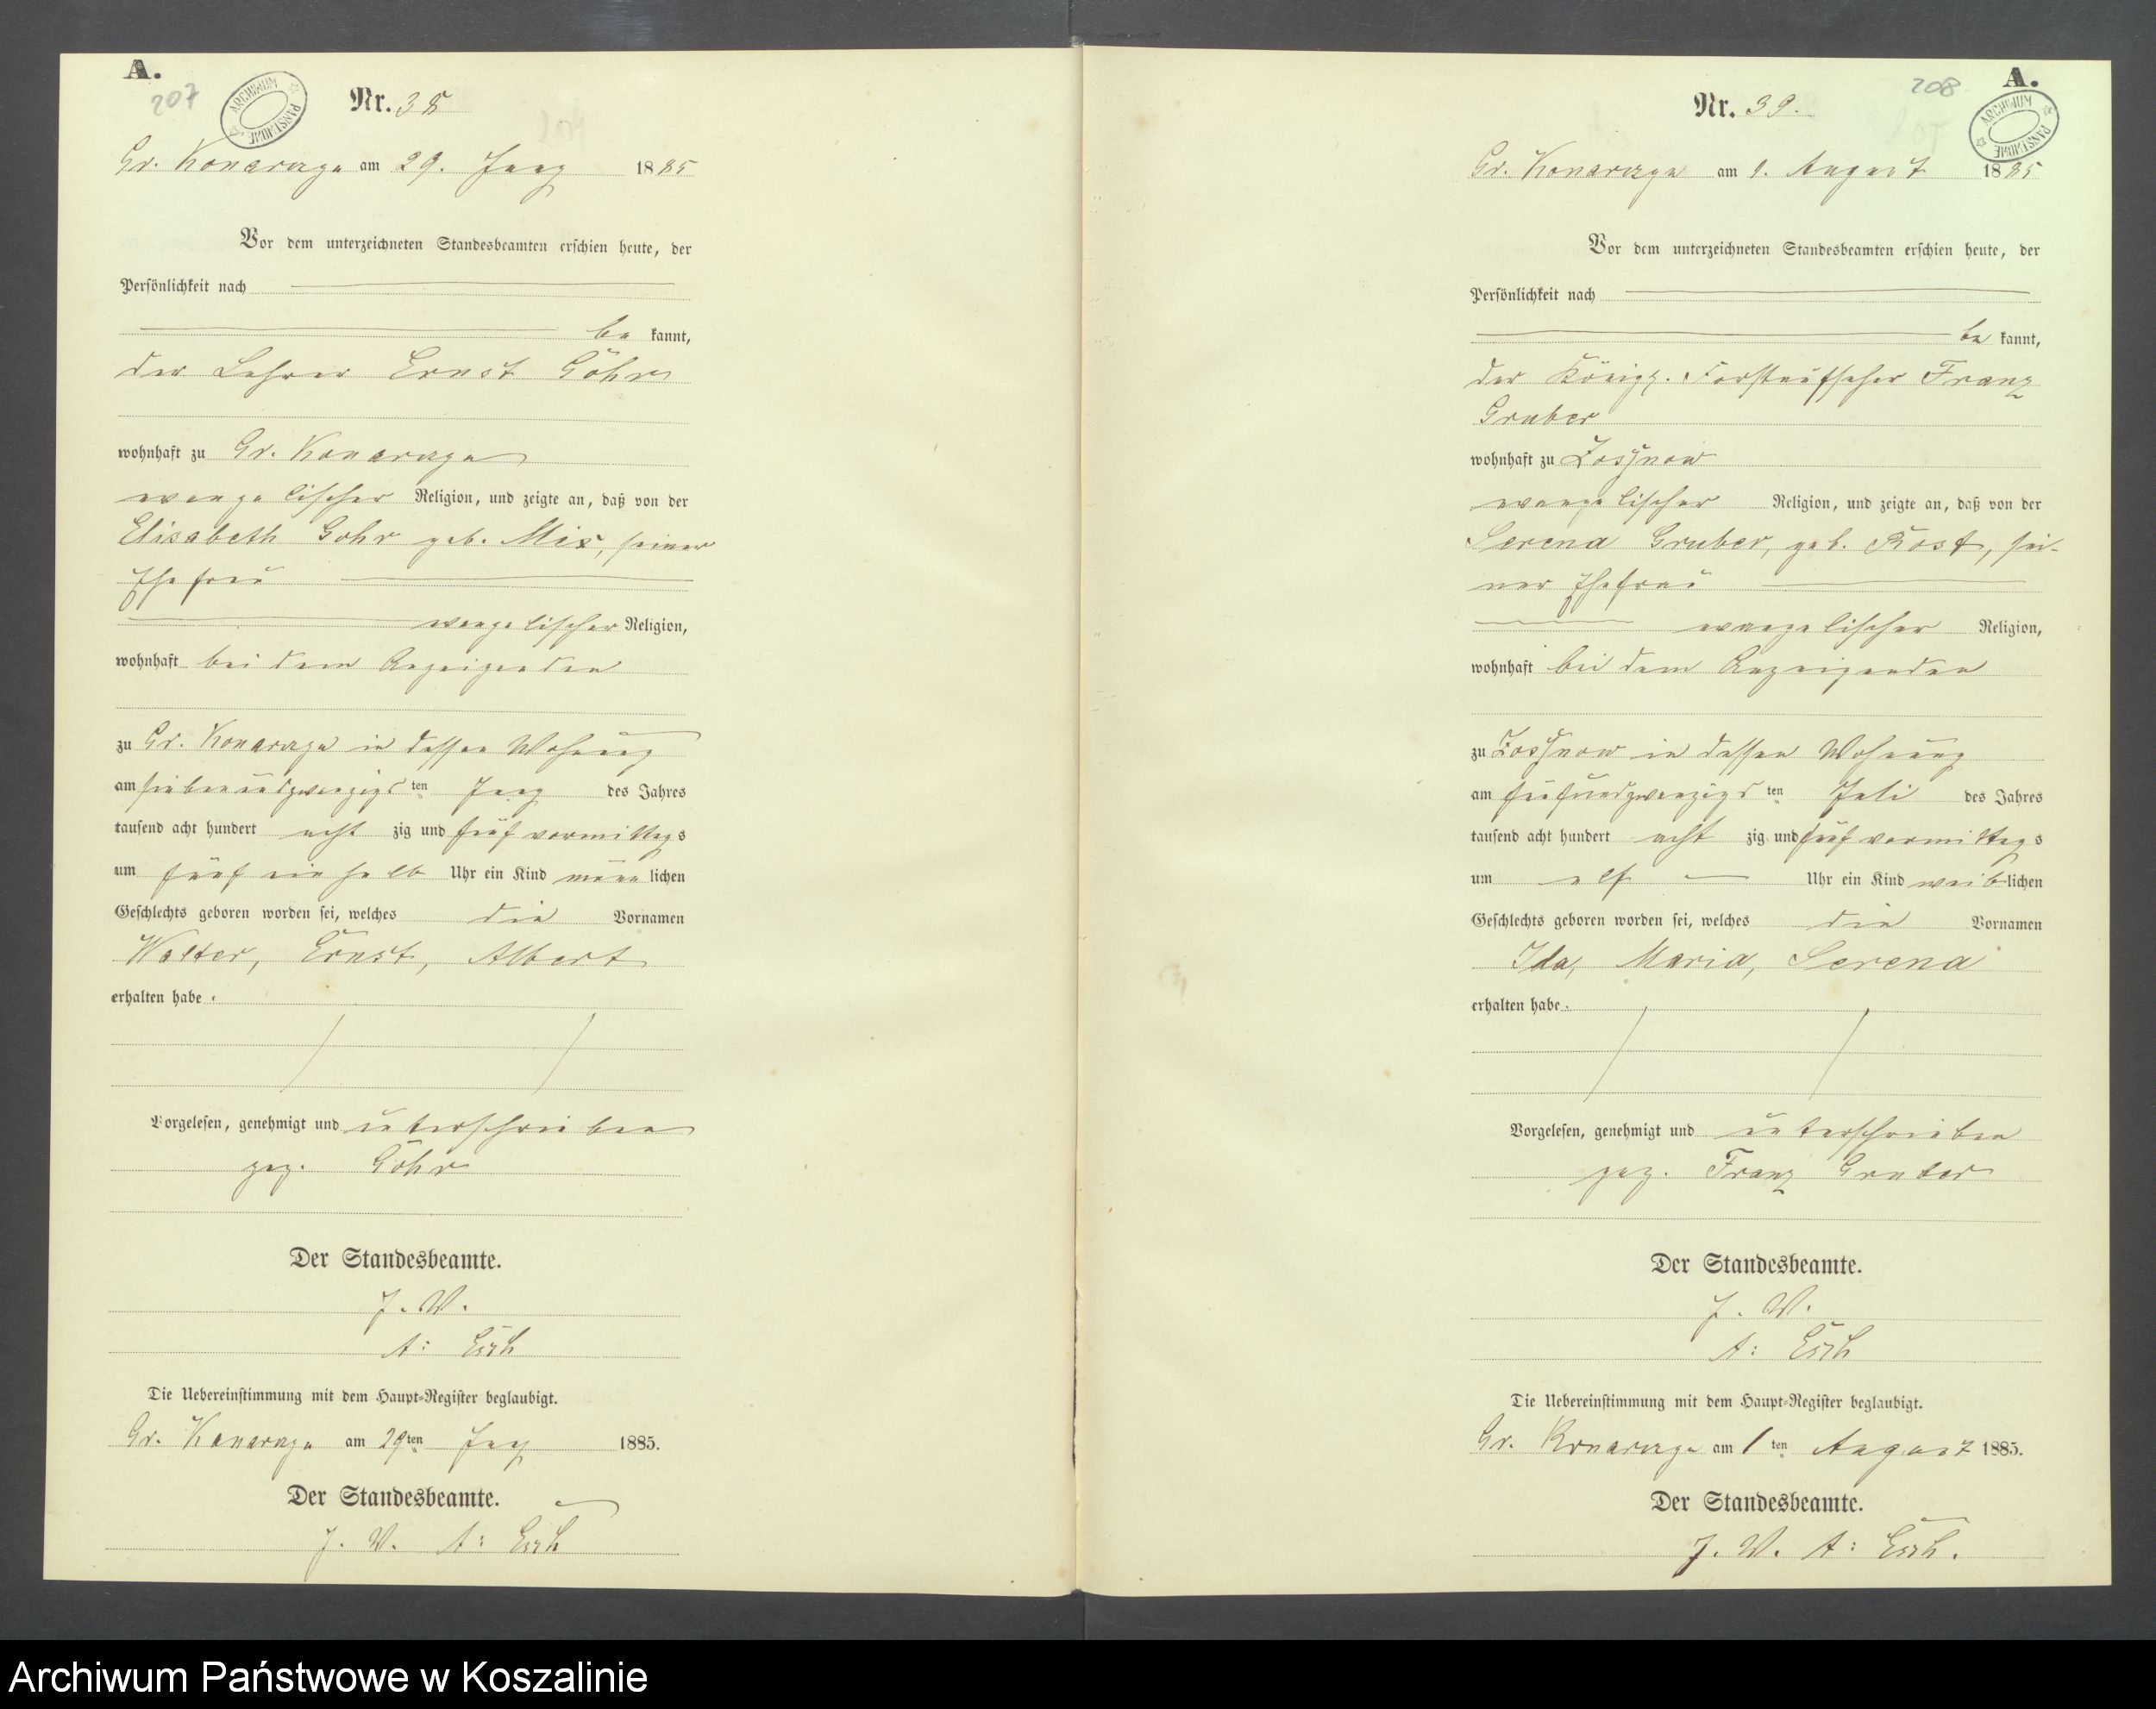 A.
207
ARCHIWUM PAŃSTWOWE
Nr. 38
Gr. Konarczyn am 29. July 1885
Vor dem unterzeichneten Standesbeamten erschien heute, der
Persönlichkeit nach
be kannt,
der Lehrer Ernst Göhr
wohnhaft zu Gr. Konarczyn
evangelischer Religion, und zeigte an, daß von der
Elisabeth Gohr geb. Mix, seiner
Ehefrau
evangelischer Religion,
wohnhaft bei dem Anzeigenden
zu Gr. Konarczyn in dessen Wohnung
am siebenundzwanzigsten July des Jahres
tausend acht hundert acht zig und fünf vormittags
um fünf ein halb Uhr ein Kind männlichen
Geschlechts geboren worden sei, welches die Vornamen
Walter, Ernst, Albert
erhalten habe.
Vorgelesen, genehmigt und unterschrieben
gez. Göhr
Der Standesbeamte.
J. V.
A:
Die Uebereinstimmung mit dem Haupt-Register beglaubigt.
Gr. Konarczyn am 29ten July 1885.
Der Standesbeamte.
J. V. A:
A.
208
ARCHIWUM PAŃSTWOWE
Nr. 39.
Gr. Konarczyn am 1. August 1885
Vor dem unterzeichneten Standesbeamten erschien heute, der
Persönlichkeit nach
be kannt,
der Königl. Forstaufseher Franz
Gruber
wohnhaft zu
evangelischer Religion, und zeigte an, daß von der
Serena Gruber, geb. Rost, sei-
ner Ehefrau
evangelischer Religion,
wohnhaft bei dem Anzeigenden
zu in dessen Wohnung
am fünfundzwanzigsten Juli des Jahres
tausend acht hundert acht zig und fünf vormittags
um elf Uhr ein Kind weiblichen
Geschlechts geboren worden sei, welches die Vornamen
Ida, Maria, Serena
erhalten habe.
Vorgelesen, genehmigt und unterschrieben
gez. Franz Gruber
Der Standesbeamte.
J. V.
A:
Die Uebereinstimmung mit dem Haupt-Register beglaubigt.
Gr. Konarczyn am 1ten August 1885.
Der Standesbeamte.
J. V. A:
Archiwum Państwowe w Koszalinie